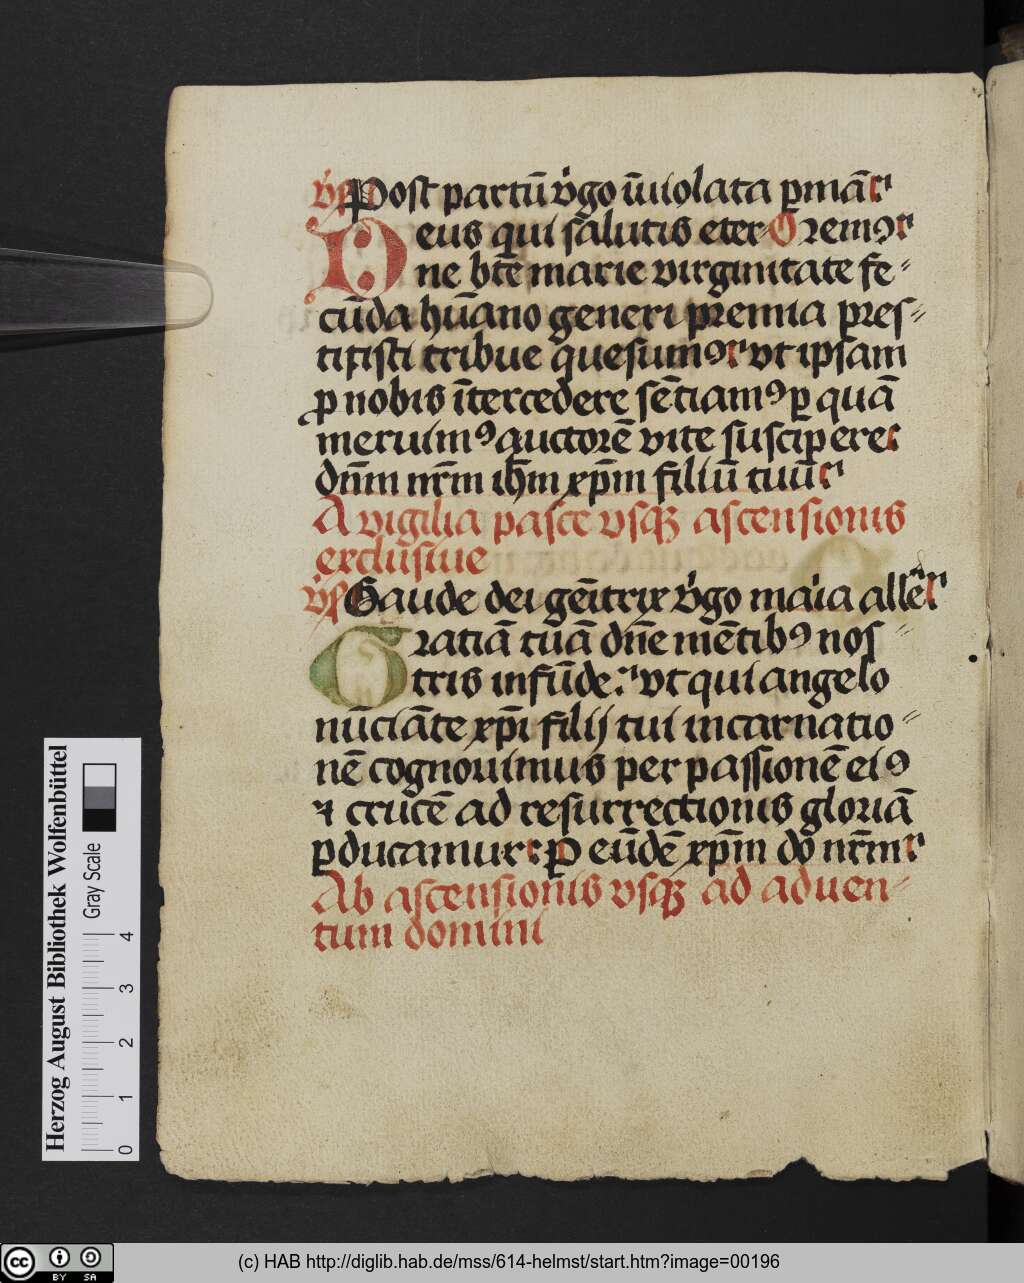 v̓ꝶ Post partū v̓go īuiolata ꝑmāꝰ
Deus qui salutis eter Oremꝰ
ne bt̄e marie virginitate fe-
cūda hūano generi premia pres-
titisti tribue quesumꝰ vt ipsam
ꝓ nobis ītercedere sētiamꝰ ꝑ quā
meruimꝰ auctorē vite suscipere
dn̄m nr̄m ih̄m xp̄m filiū tuū
A vigilia pasce vsqꝫ ascensionis
exclusiue
v̓ꝶ Gaude dei geītrix v̓go maͥa all̄e
Gratiā tuā dn̄e mētibꝰ nos-
tris infūde: vt qui angelo
nūciāte xp̄i filij tui incarnatio-
nē cognouimus per passionē eiꝰ
⁊ crucē ad resurrectionis gloriā
ꝑducamur: Ꝑ eūdē xp̄m do͞ nr̄m
Ab ascensionis vsqꝫ ad aduen-
tum domini
Herzog August Bibliothek Wolfenbüttel
Gray Scale
0 1 2 3 4
cc BY SA
(c) HAB http://diglib.hab.de/mss/614-helmst/start.htm?image=00196